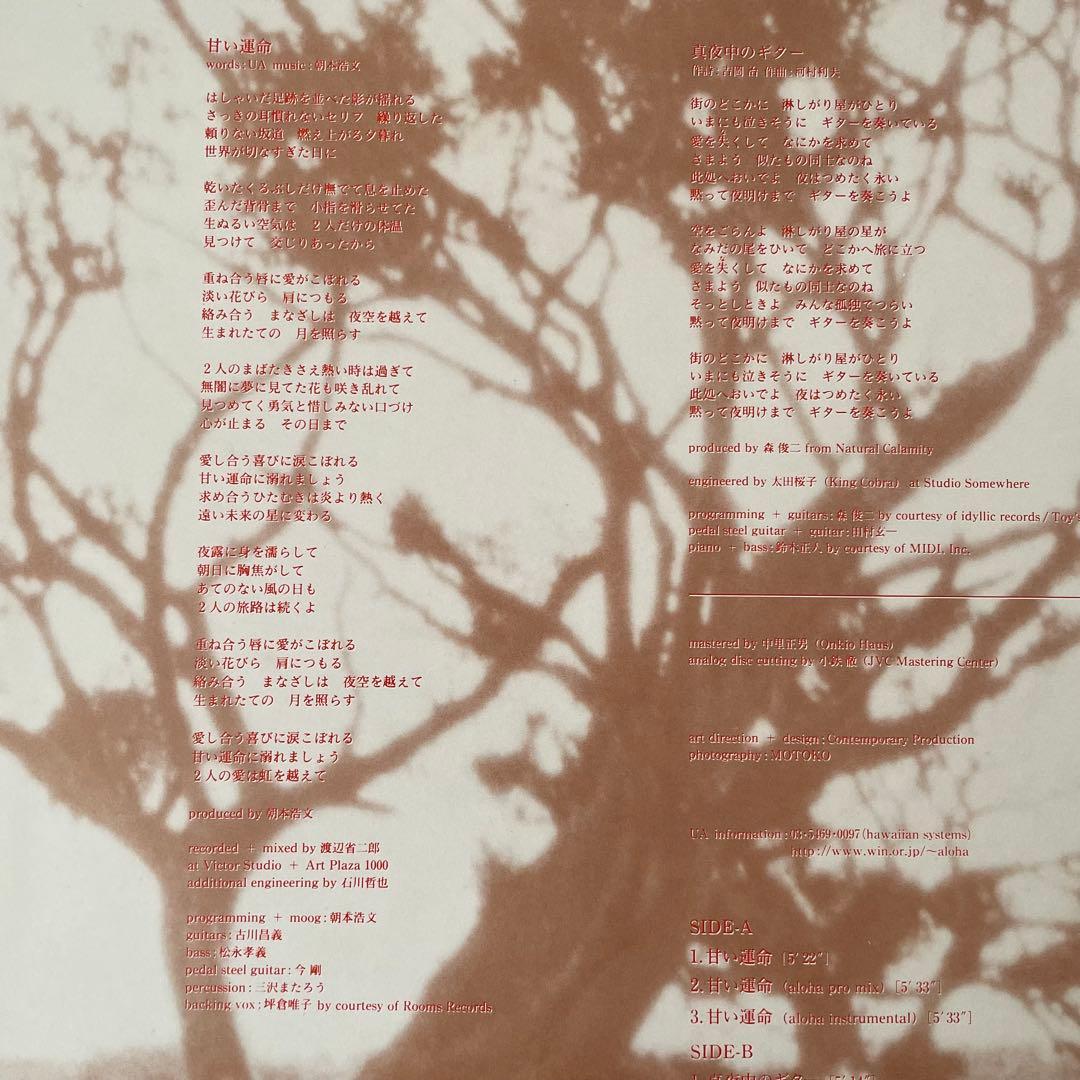 甘い運命
words:UA music:朝本浩文
はしゃいだ足跡を並べた影が揺れる
さっきの耳慣れないセリフ 繰り返した
頼りない坂道 燃え上がる夕暮れ
世界が切なすぎた日に
乾いたくるぶしだけ撫でて息を止めた
歪んだ背骨まで 小指を滑らせてた
生ぬるい空気は 2人だけの体温
見つけて 交じりあったから
重ね合う唇に愛がこぼれる
淡い花びら 肩につもる
絡み合う まなざしは 夜空を越えて
生まれたての 月を照らす
2人のまばたきさえ熱い時は過ぎて
無闇に夢に見てた花も咲き乱れて
見つめてく勇気と惜しみない口づけ
心が止まる その日まで
愛し合う喜びに涙こぼれる
甘い運命に溺れましょう
求め合うひたむきは炎より熱く
遠い未来の星に変わる
夜露に身を濡らして
朝日に胸焦がして
あてのない風の日も
2人の旅路は続くよ
重ね合う唇に愛がこぼれる
淡い花びら 肩につもる
絡み合う まなざしは 夜空を越えて
生まれたての 月を照らす
愛し合う喜びに涙こぼれる
甘い運命に溺れましょう
2人の愛は虹を越えて
produced by 朝本浩文
recorded + mixed by 渡辺省二郎
at Victor Studio + Art Plaza 1000
additional engineering by 石川哲也
programming + moog:朝本浩文
guitars:古川昌義
bass:松永孝義
pedal steel guitar:今 剛
percussion:三沢またろう
backing vox:坪倉唯子 by courtesy of Rooms Records
真夜中のギター
作詩:吉岡 治 作曲:河村利夫
街のどこかに 淋しがり屋がひとり
いまにも泣きそうに ギターを奏いている
愛を失くして なにかを求めて
さまよう 似たもの同士なのね
此処へおいでよ 夜はつめたく永い
黙って夜明けまで ギターを奏こうよ
空をごらんよ 淋しがり屋の星が
なみだの尾をひいて どこかへ旅に立つ
愛を失くして なにかを求めて
さまよう 似たもの同士なのね
そっとしときよ みんな孤独でつらい
黙って夜明けまで ギターを奏こうよ
街のどこかに 淋しがり屋がひとり
いまにも泣きそうに ギターを奏いている
此処へおいでよ 夜はつめたく永い
黙って夜明けまで ギターを奏こうよ
produced by 森 俊二 from Natural Calamity
engineered by 太田桜子 (King Cobra) at Studio Somewhere
programming + guitars:森 俊二 by courtesy of idyllic records / Toy's
pedal steel guitar + guitar:田村玄一
piano + bass:鈴木正人 by courtesy of MIDI, Inc.
mastered by 中里正男 (Onkio Haus)
analog disc cutting by 小鉄 徹 (JVC Mastering Center)
art direction + design:Contemporary Production
photography:MOTOKO
UA information:03・5469・0097(hawaiian systems)
http://www.win.or.jp/~aloha
SIDE-A
1.甘い運命 [5'22"]
2.甘い運命 (aloha pro mix) [5'33"]
3.甘い運命 (aloha instrumental) [5'33"]
SIDE-B
1.真夜中のギター [5'14"]